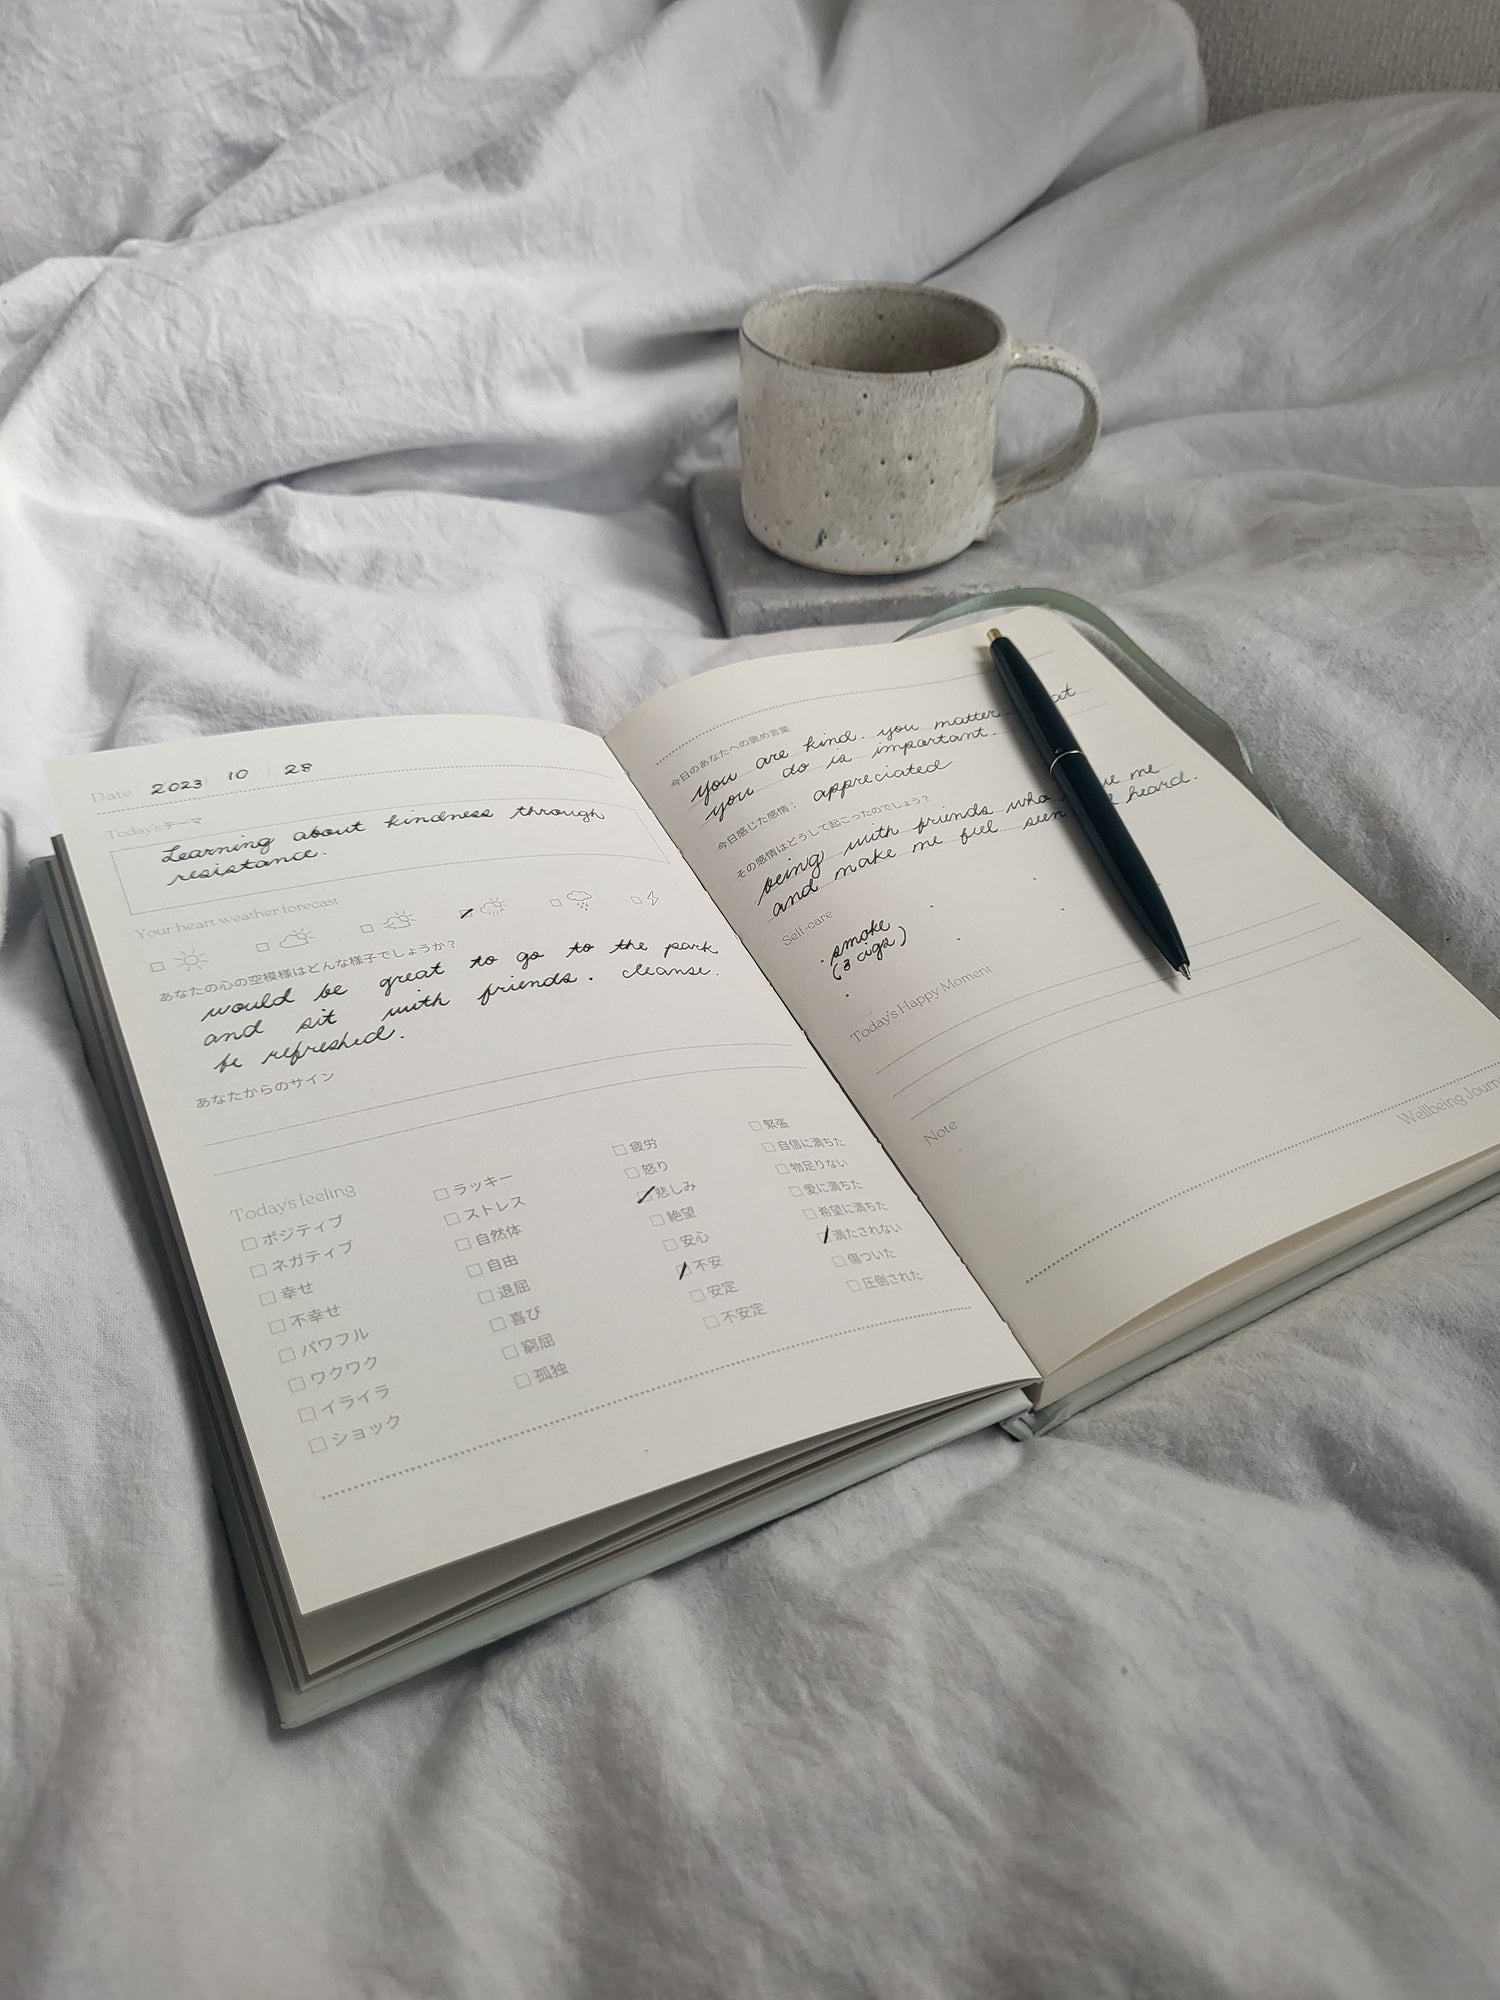 Date 2023 10 28
Today'sテーマ
Learning about kindness through
resistance.
Your heart weather forecast
あなたの心の空模様はどんな様子でしょうか？
would be great to go to the park
and sit with friends. cleanse.
be refreshed.
あなたからのサイン
Today's feeling
ポジティブ
ネガティブ
幸せ
不幸せ
パワフル
ワクワク
イライラ
ショック
ラッキー
ストレス
自然体
自由
退屈
喜び
窮屈
孤独
疲労
怒り
悲しみ
絶望
安心
不安
安定
不安定
緊張
自信に満ちた
物足りない
愛に満ちた
希望に満ちた
満たされない
傷ついた
圧倒された
今日のあなたへの褒め言葉
you are kind. you matter.
you do is important.
今日感じた感情： appreciated
その感情はどうして起こったのでしょう？
being with friends who me
and make me feel seen heard.
Self-care
・smoke
(3 cigs)
・
Today's Happy Moment
Note
Wellbeing